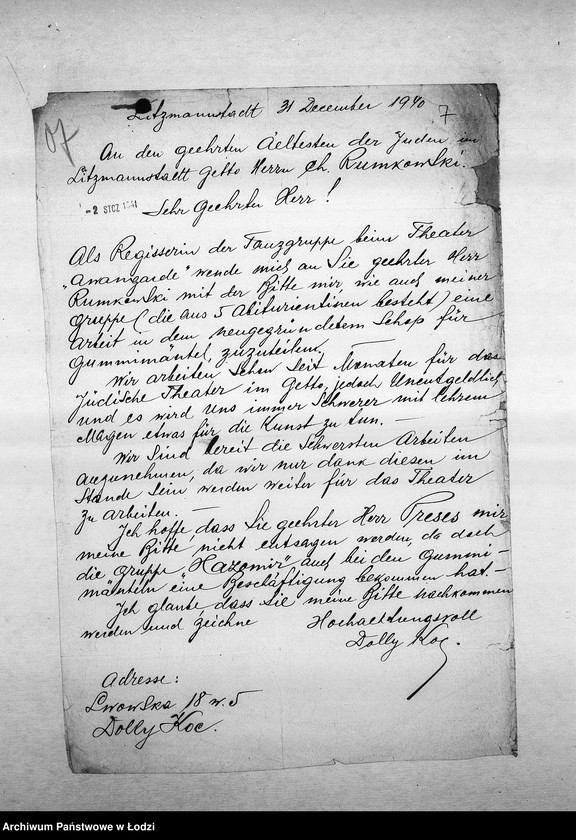 Litzmannstadt 31 December 1940
7
07
An den geehrten Aeltesten der Juden in
Litzmannstadt Getto Herrn Ch. Rumkowski.
-2 STCZ 1941
Sehr Geehrter Herr!
Als Regisserin der Tanzgruppe beim Theater
"Awangarde" wende mich an Sie geehrter Herr
Rumkowski mit der Bitte mir, wie auch meiner
Gruppe (die aus 5 Abiturientinen besteht) eine
Arbeit in dem neugegründetem Schop für
Gummimäntel, zuzuteilen.
Wir arbeiten schon seit Monaten für das
Jüdische Theater im Getto, jedoch Unentgeldlich
und es wird uns immer Schwerer mit lehrem
Magen etwas für die Kunst zu tun. —
Wir Sind bereit die Schwersten Arbeiten
anzunehmen, da wir nur dank diesen im
Stande Sein, werden weiter für das Theater
zu arbeiten. —
Ich hoffe, dass Sie geehrter Herr Preses mir
meine Bitte nicht entsagen werden, da doch
die Gruppe "Hazomir" auch bei den Gummi-
mänteln eine Beschäftigung bekommen hat. —
Ich glaube, dass Sie meine Bitte nachkommen
werden und zeichne Hochachtungsvoll
Dolly Koc.
Adresse:
Lwowska 18 w. 5
Dolly Koc.
Archiwum Państwowe w Łodzi